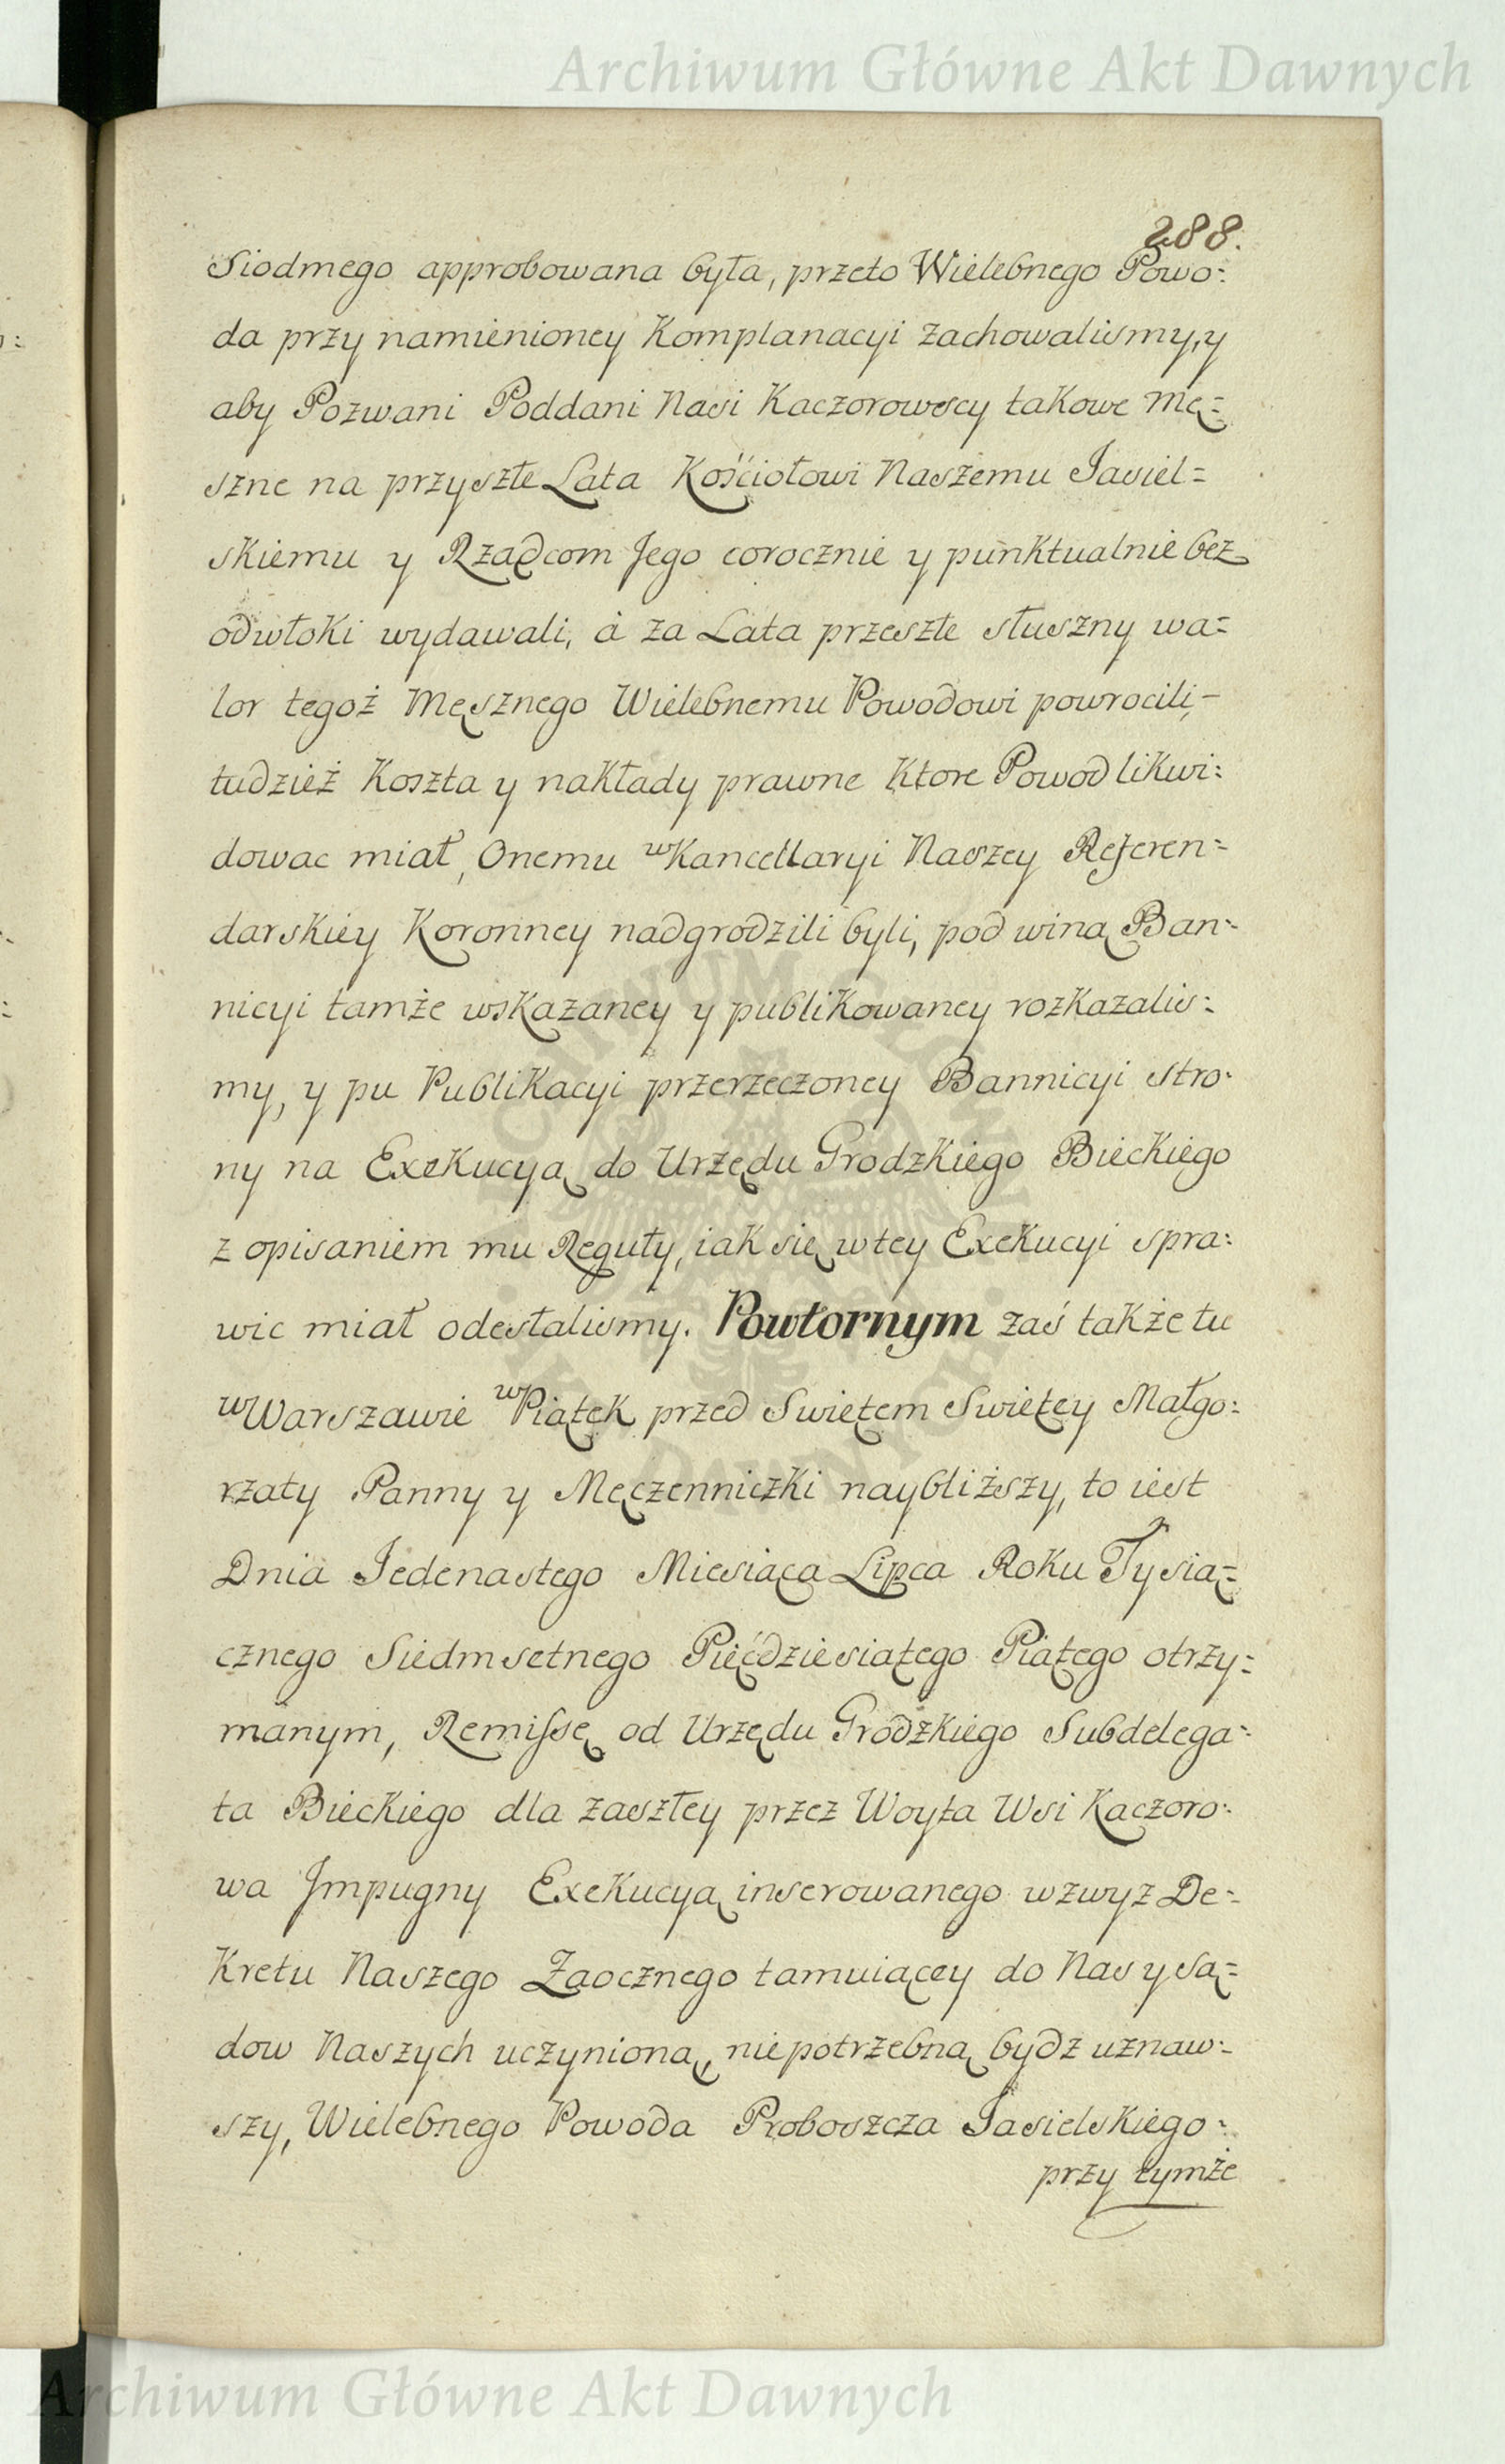 Archiwum Główne Akt Dawnych
288.
Siodmego approbowana była, przeto Wielebnego Powo:
da przy namienioney Komplanacyi zachowalismy, y
aby Pozwani Poddani Nasi Kaczorowscy takowe Mę=
szne na przyszłe Lata Kościołowi Naszemu Jasiel=
skiemu y Rządcom Jego corocznie y punktualnie bez
odwłoki wydawali, à za Lata przeszłe słuszny wa=
lor tegoż Męsznego Wielebnemu Powodowi powrocili,-
tudzież Koszta y nakłady prawne Ktore Powod likwi:
dowac miał, Onemu w Kancellaryi Naszey Referen=
darskiey Koronney nadgrodzili byli, pod winą Ban-
nicyi tamże wskazaney y publikowaney rozkazalis:
my, y pu Publikacyi przerzeczoney Bannicyi stro-
ny na Exekucyą do Urzędu Grodzkiego Bieckiego
z opisaniem mu Reguły, iak się w tey Exekucyi spra:
wic miał odesłalismy. Powtornym zaś także tu
w Warszawie w Piątek przed Swiętem Swiętey Małgo:
rzaty Panny y Męczenniczki naybliższy, to iest
Dnia Jedenastego Miesiąca Lipca Roku Tysią=
cznego Siedmsetnego Pięćdziesiątego Piątego otrzy=
manym, Remissę od Urzędu Grodzkiego Subdelega-
ta Bieckiego dla zaszłey przez Woyta Wsi Kaczoro-
wa Jmpugny Exekucyą inserowanego wzwyz De-
Kretu Naszego Zaocznego tamuiącey do Nas y Są=
dow Naszych uczynioną, niepotrzebną bydz uznaw-
szy, Wielebnego Powoda Proboszcza Jasielskiego:
przy tymże
Archiwum Główne Akt Dawnych